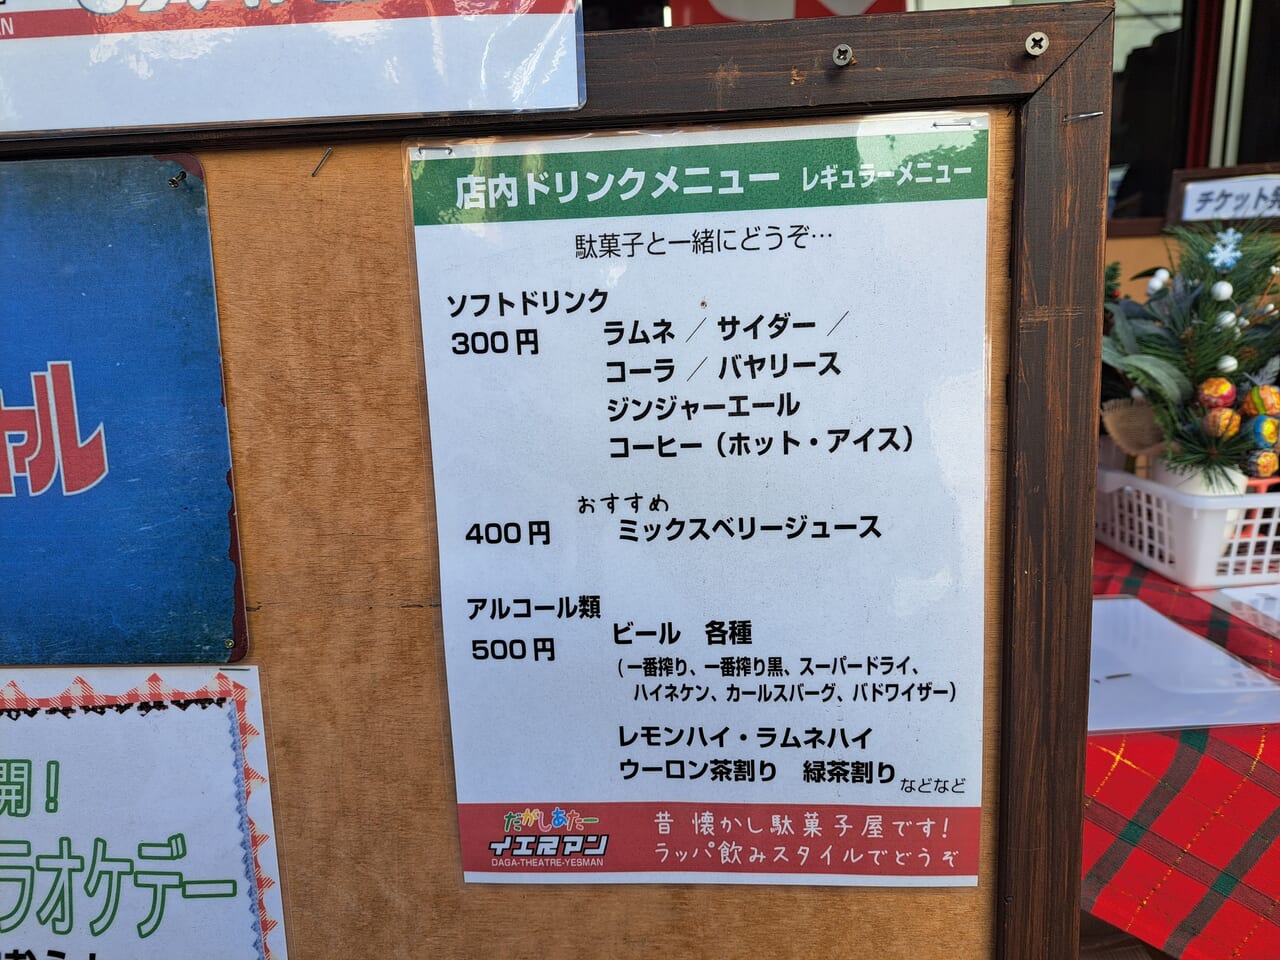 店内ドリンクメニュー レギュラーメニュー
駄菓子と一緒にどうぞ…
ソフトドリンク
300円 ラムネ ／ サイダー ／
コーラ ／ バヤリース
ジンジャーエール
コーヒー（ホット・アイス）
おすすめ
400円 ミックスベリージュース
アルコール類
500円 ビール 各種
（一番搾り、一番搾り黒、スーパードライ、
ハイネケン、カールスバーグ、バドワイザー）
レモンハイ・ラムネハイ
ウーロン茶割り 緑茶割り などなど
だがしあたー
イエスマン
DAGA-THEATRE-YESMAN
昔懐かし駄菓子屋です!
ラッパ飲みスタイルでどうぞ
チケット
ャル
開!
ラオケデー